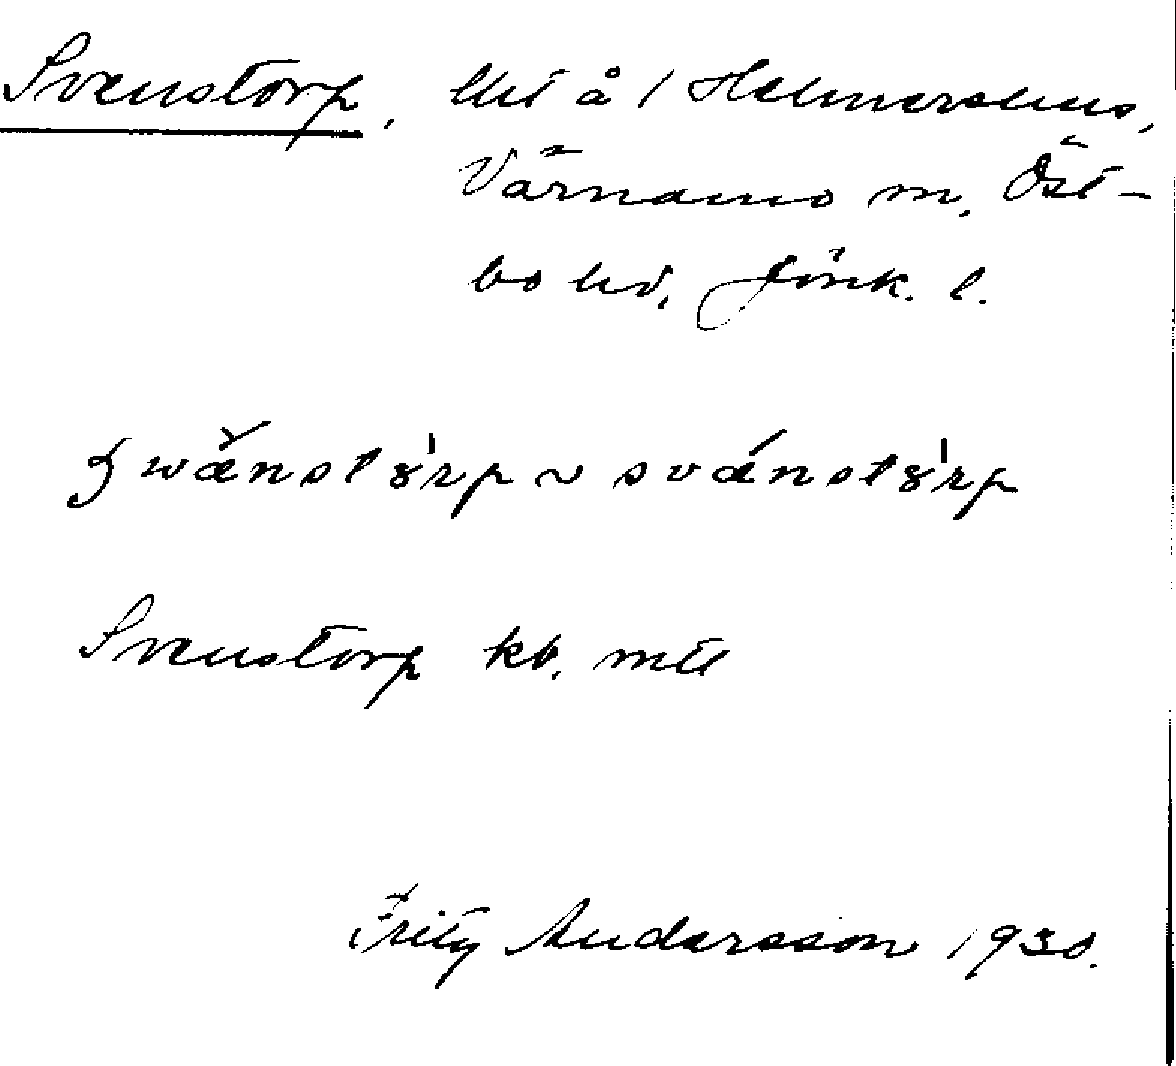 Svenstorp, lht å 1 Helmershus,
Värnamo sn, Öst-
bo hd, Jönk. l.
swǎnstȣrp ~ svánstȣrp
Svenstorp kb. mtl
Fritz Andersson 1930.